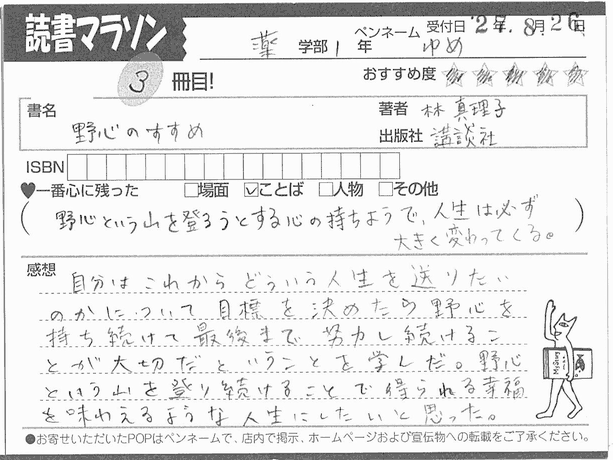 読書マラソン
薬 学部 1 年
ペンネーム ゆめ
受付日 '27. 8月26日
3 冊目!
おすすめ度 ★★★★★
書名 野心のすすめ
著者 林 真理子
出版社 講談社
ISBN
♥一番心に残った □場面 ☑ことば □人物 □その他
(野心という山を登ろうとする心の持ちようで、人生は必ず
大きく変わってくる。)
感想
自分はこれからどういう人生を送りたい
のかについて目標を決めたら野心を
持ち続けて最後まで努力し続けるこ
とが大切だということを学んだ。野心
という山を登り続けることで得られる幸福
を味わえるような人生にしたいと思った。
●お寄せいただいたPOPはペンネームで、店内で掲示、ホームページおよび宣伝物への転載をご了承ください。